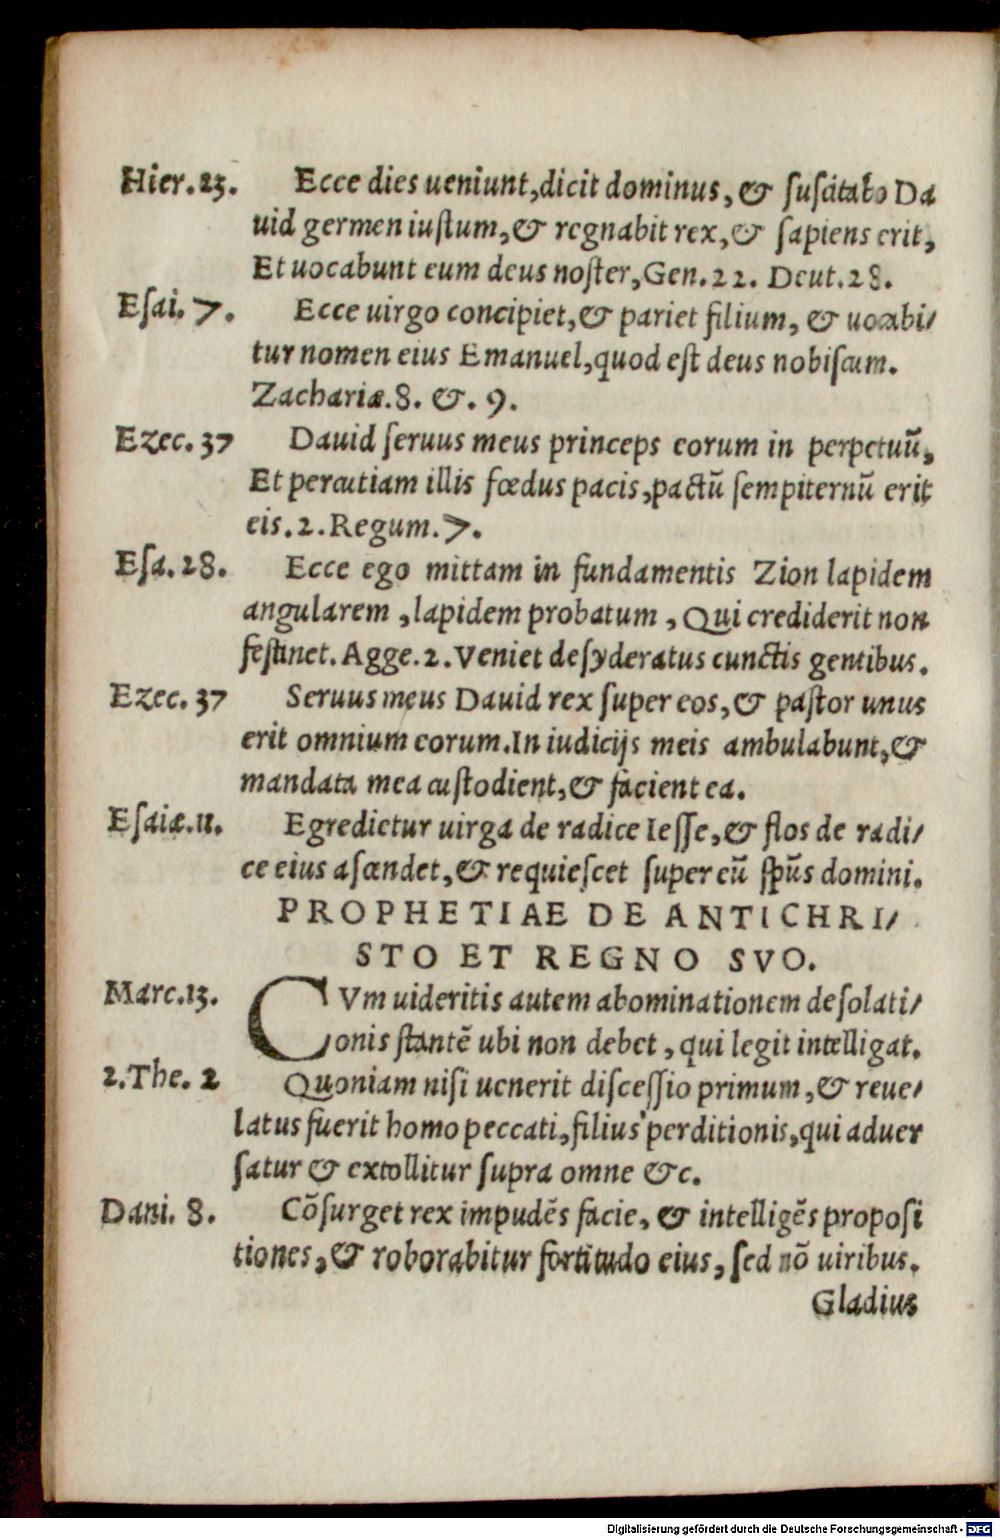 Hier.23. Ecce dies ueniunt,dicit dominus, & suscitabo Da
uid germen iustum,& regnabit rex,& sapiens erit,
Et uocabunt eum deus noster,Gen.22. Deut.28.
Esai. 7. Ecce uirgo concipiet,& pariet filium, & uocabi/
tur nomen eius Emanuel,quod est deus nobiscum.
Zachariæ.8. &. 9.
Ezec. 37 Dauid seruus meus princeps eorum in perpetuū,
Et percutiam illis fœdus pacis,pactū sempiternū erit
eis.2.Regum.7.
Esa. 28. Ecce ego mittam in fundamentis Zion lapidem
angularem ,lapidem probatum , Qui crediderit non
festinet. Agge.2.Veniet desyderatus cunctis gentibus.
Ezec. 37 Seruus meus Dauid rex super eos,& pastor unus
erit omnium eorum.In iudicijs meis ambulabunt,&
mandata mea custodient,& facient ea.
Esaiæ.11. Egredietur uirga de radice Iesse,& flos de radi/
ce eius ascendet,& requiescet super eū spūs domini.
PROPHETIAE DE ANTICHRI/
STO ET REGNO SVO.
Marc.13. CVm uideritis autem abominationem desolati/
onis stantē ubi non debet , qui legit intelligat.
2.The. 2 Quoniam nisi uenerit discessio primum ,& reue/
latus fuerit homo peccati,filius perditionis,qui aduer
satur & extollitur supra omne &c.
Dani. 8. Cōsurget rex impudēs facie, & intelligēs proposi
tiones,& roborabitur fortitudo eius, sed nō uiribus.
Gladius
Digitalisierung gefördert durch die Deutsche Forschungsgemeinschaft - DFG